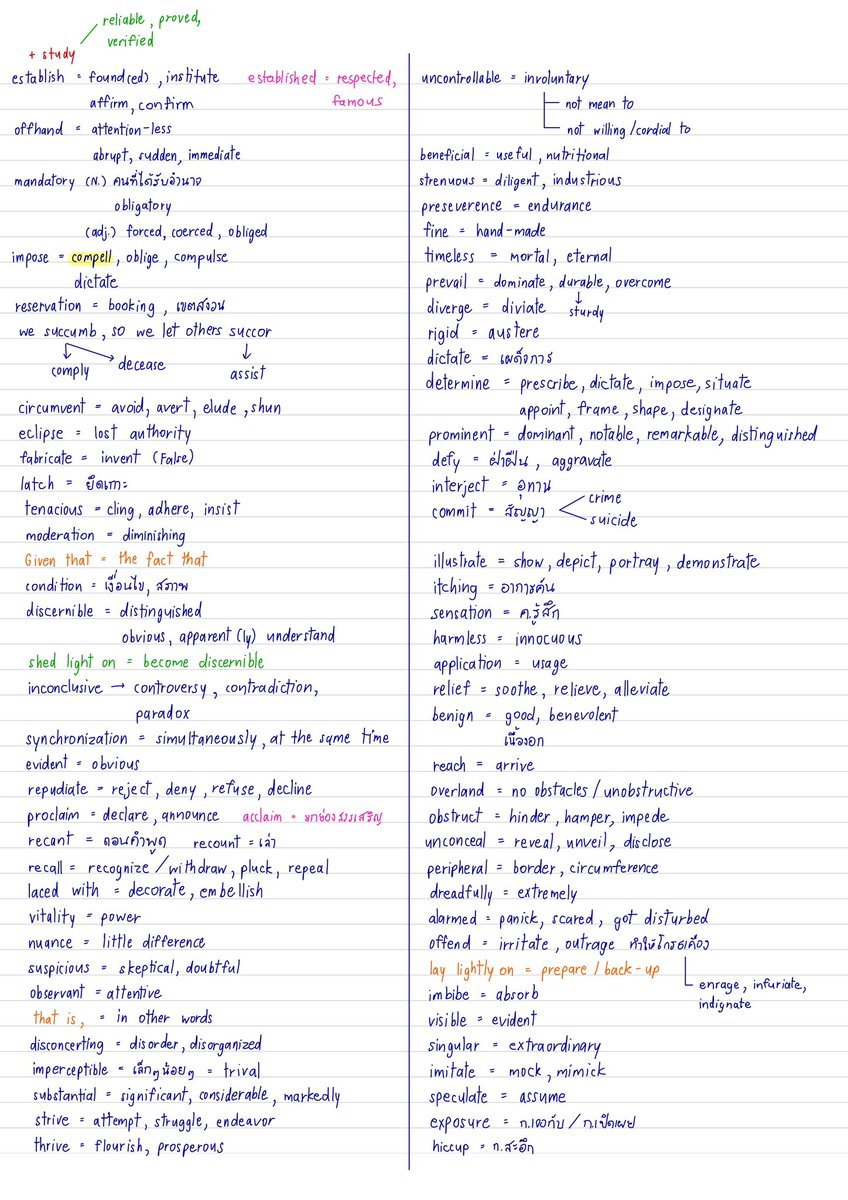 reliable, proved,
verified
+ study
establish = found(ed), institute established = respected,
affirm, confirm famous
offhand = attention-less
abrupt, sudden, immediate
mandatory (N.) คนที่ได้รับอำนาจ
obligatory
(adj.) forced, coerced, obliged
impose = compell, oblige, compulse
dictate
reservation = booking, เขตสงวน
we succumb, so we let others succor
comply decease assist
circumvent = avoid, avert, elude, shun
eclipse = lost authority
fabricate = invent (False)
latch = ยึดเกาะ
tenacious = cling, adhere, insist
moderation = diminishing
Given that = the fact that
condition = เงื่อนไข, สภาพ
discernible = distinguished
obvious, apparent(ly) understand
shed light on = become discernible
inconclusive → controversy, contradiction,
paradox
synchronization = simultaneously, at the same time
evident = obvious
repudiate = reject, deny, refuse, decline
proclaim = declare, announce acclaim = ยกย่องสรรเสริญ
recant = ถอนคำพูด recount = เล่า
recall = recognize / withdraw, pluck, repeal
laced with = decorate, embellish
vitality = power
nuance = little difference
suspicious = skeptical, doubtful
observant = attentive
that is, = in other words
disconcerting = disorder, disorganized
imperceptible = เล็กๆน้อยๆ = trival
substantial = significant, considerable, markedly
strive = attempt, struggle, endeavor
thrive = flourish, prosperous
uncontrollable = involuntary
not mean to
not willing /cordial to
beneficial = useful, nutritional
strenuous = diligent, industrious
preseverence = endurance
fine = hand-made
timeless = mortal, eternal
prevail = dominate, durable, overcome
diverge = diviate sturdy
rigid = austere
dictate = เผด็จการ
determine = prescribe, dictate, impose, situate
appoint, frame, shape, designate
prominent = dominant, notable, remarkable, distinguished
defy = ฝ่าฝืน, aggravate
interject = อุทาน
commit = สัญญา crime
suicide
illustrate = show, depict, portray, demonstrate
itching = อาการคัน
sensation = ค.รู้สึก
harmless = innocuous
application = usage
relief = soothe, relieve, alleviate
benign = good, benevolent
เนื้องอก
reach = arrive
overland = no obstacles / unobstructive
obstruct = hinder, hamper, impede
unconceal = reveal, unveil, disclose
peripheral = border, circumference
dreadfully = extremely
alarmed = panick, scared, got disturbed
offend = irritate, outrage ทำให้โกรธเคือง
lay lightly on = prepare / back-up
enrage, infuriate,
indignate
imbibe = absorb
visible = evident
singular = extraordinary
imitate = mock, mimick
speculate = assume
exposure = ก.เจอกับ / ก.เปิดเผย
hiccup = ก.สะอึก